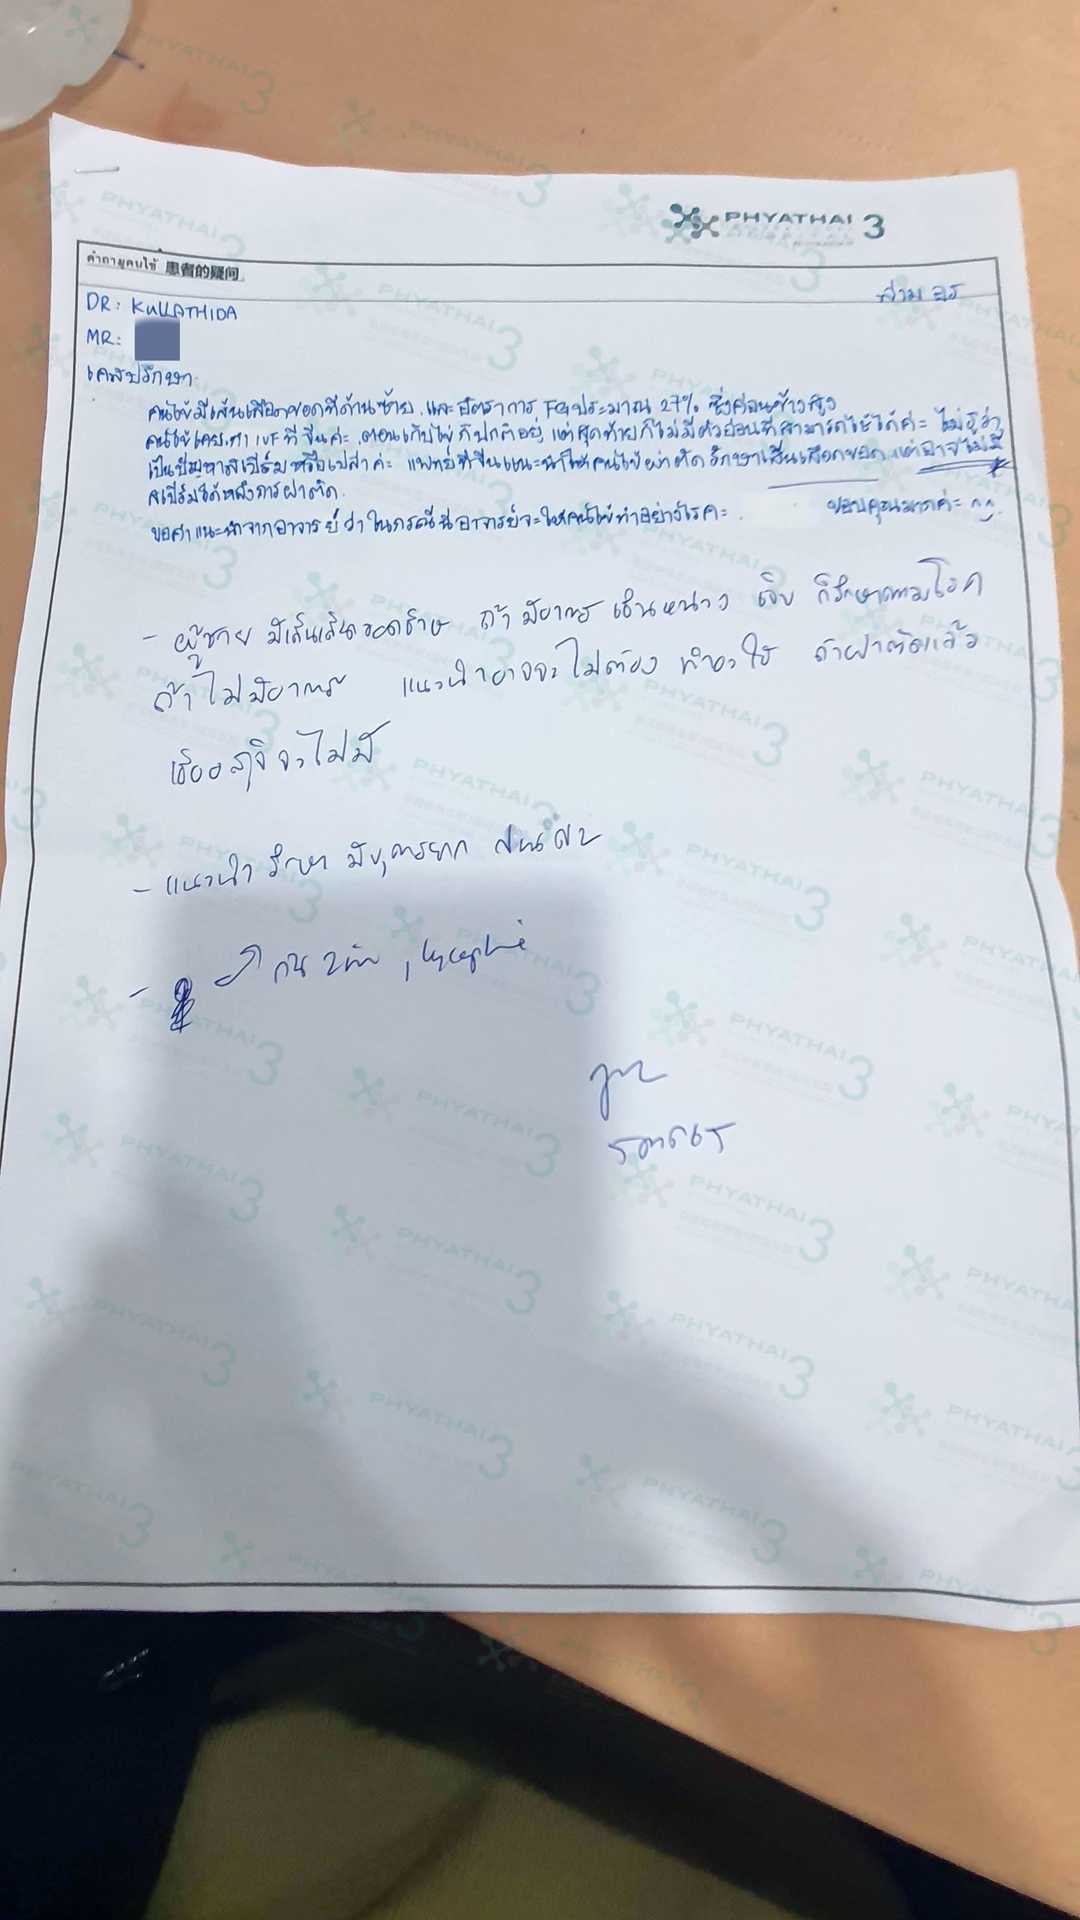 PHYATHAI 3
คำถามคนไข้ 患者的疑问
ถาม อร
DR: KULLATHIDA
MR:
เคสปรึกษา
คนไข้มีเส้นเลือดขอดที่ด้านซ้าย และอัตราการ ประมาณ 27% ซึ่งค่อนข้างสูง
คนไข้เคยทำ IVF ที่จีนค่ะ ตอนเก็บไข่ก็ปกติอยู่ แต่สุดท้ายก็ไม่มีตัวอ่อนที่สามารถใช้ได้ค่ะ ไม่รู้ว่า
เป็นปัญหาสเปิร์มหรือเปล่าค่ะ แพทย์ที่จีนแนะนำให้คนไข้ผ่าตัดรักษาเส้นเลือดขอด แต่อาจไม่มี
สเปิร์มได้หลังการผ่าตัด
ขอคำแนะนำจากอาจารย์ว่าในกรณีนี้อาจารย์จะให้คนไข้ทำอย่างไรคะ ขอบคุณมากค่ะ
- ผู้ชาย มีเส้นเลือดขอดซ้าย ถ้า มีอาการ เช่นหน่วง เจ็บ ก็รักษาตามโรค
ถ้าไม่มีอาการ แนะนำอาจจะไม่ต้อง ทำอะไร ถ้าผ่าตัดแล้ว
เชื้ออสุจิจะไม่มี
- แนะนำ รักษา มีบุตรยาก